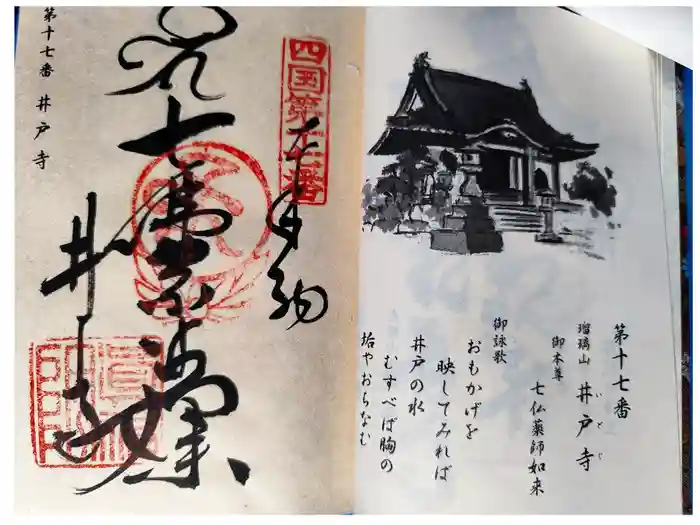 第十七番 井戸寺
四国第十七番
奉拝
七佛薬師如来
井戸寺
第十七番
瑠璃山 井戸寺
いどじ
御本尊
七仏薬師如来
御詠歌
おもかげを
映してみれば
井戸の水
むすべば胸の
垢やおちなむ